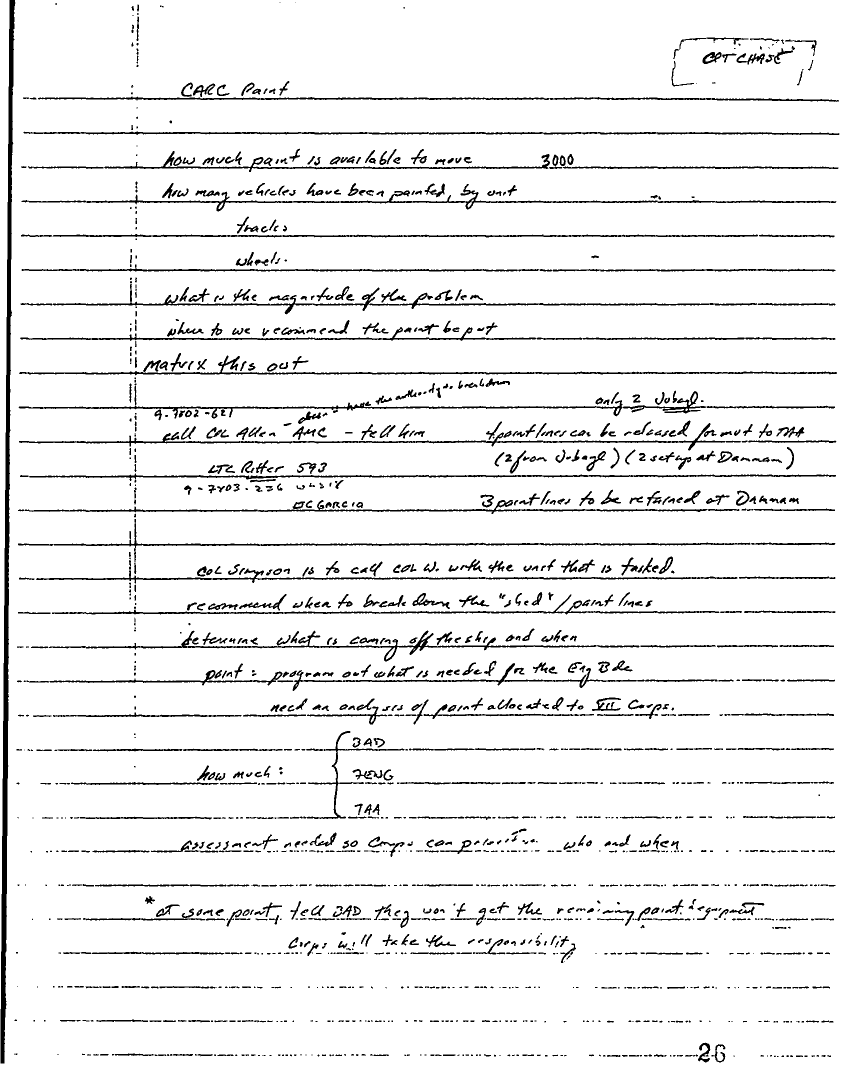 CPT CHASE
CARC Paint
how much paint is available to move 3000
how many vehicles have been painted, by unit
tracks
wheels.
what is the magnitude of the problem
where to we recommend the paint be put
matrix this out
doesn't have the authority to breakdown
only 2 Jubayl.
9-7802-621
call COL Allen - AMC - tell him 4 paint lines can be released for mvt to TAA
(2 from Jubayl) (2 set up at Dammam)
LTC Ritter 593
9-7803-236
LTC GARCIA 3 paint lines to be retained at Dammam
COL Simpson is to call COL W. with the unit that is tasked.
recommend when to break down the "shed"/paint lines
determine what is coming off the ship and when
paint: program out what is needed for the Eng Bde
need an analysis of paint allocated to VII Corps.
3AD
how much: 7ENG
TAA
assessment needed so Corps can prioritize who and when
* at some point, tell 3AD they won't get the remaining paint & equipment
Corps will take the responsibility
26